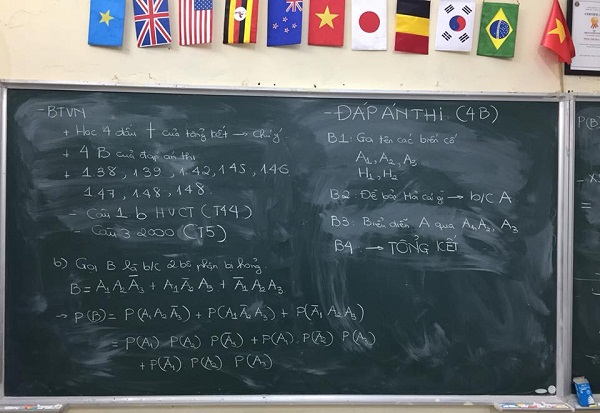 - BTVN
+ Học 4 dấu † của tổng kết → Chú ý
+ 4 B của đáp án thi
+ 138, 139, 142, 145, 146
147, 148, 148.
- Câu 1 b HVCT (T44)
- Câu 3 2000 (CT5)
b) Gọi B là b/c 2 bộ phận bị hỏng
B = A₁A₂A̅₃ + A₁A̅₂A₃ + A̅₁A₂A₃
→ P(B) = P(A₁A₂A̅₃) + P(A₁A̅₂A₃) + P(A̅₁A₂A₃)
= P(A₁) P(A₂) P(A̅₃) + P(A₁) . P(A̅₂) P(A₃)
+ P(A̅₁) P(A₂) P(A₃)
- ĐÁP ÁN THI (4B)
B1: Gọi tên các biến cố
A₁, A₂, A₃
H₁, H₂
B2 Đề bảo → b/c A
B3: Biểu diễn A qua A₁, A₂, A₃
B4 → TỔNG KẾT
P(B)
=